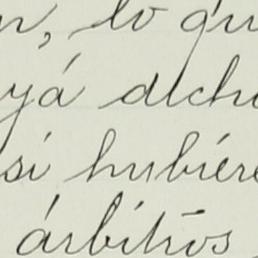 n, lo qu
yá dicho
si hubiére
árbitros